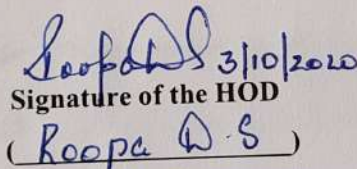 RoopaDS 3/10/2020
Signature of the HOD
( Roopa D.S )